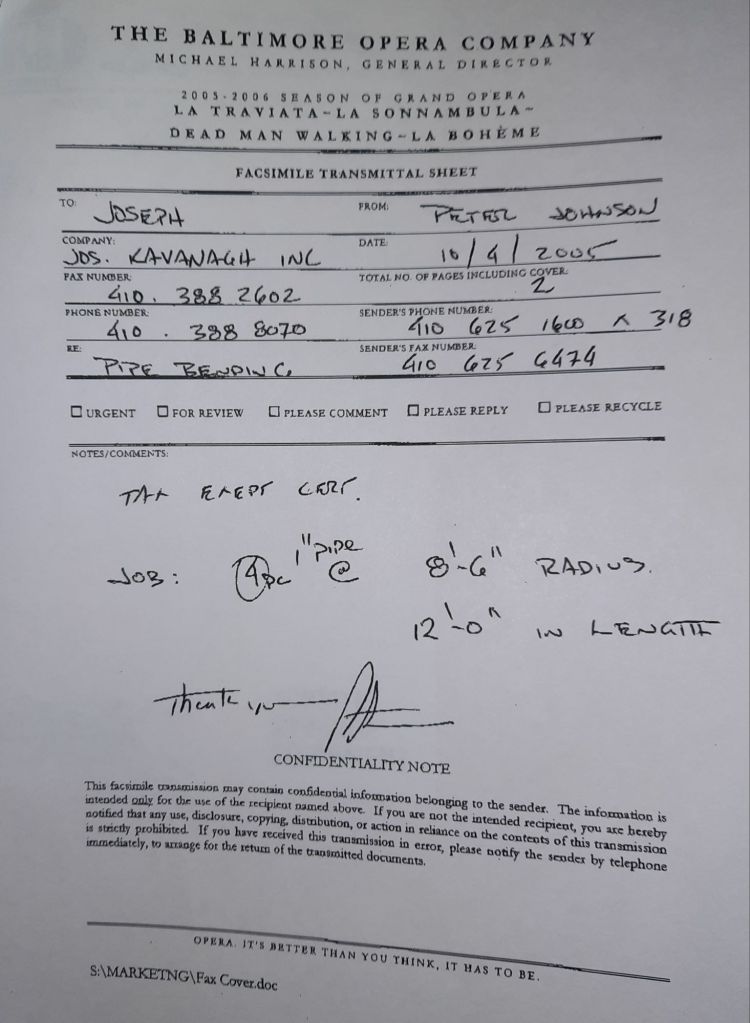 THE BALTIMORE OPERA COMPANY
MICHAEL HARRISON, GENERAL DIRECTOR
2005-2006 SEASON OF GRAND OPERA
LA TRAVIATA~LA SONNAMBULA~
DEAD MAN WALKING~LA BOHÈME
FACSIMILE TRANSMITTAL SHEET
TO: JOSEPH FROM: PETER JOHNSON
COMPANY: JOS. KAVANAGH INC DATE: 10/4/2005
FAX NUMBER: 410. 388 2602 TOTAL NO. OF PAGES INCLUDING COVER: 2
PHONE NUMBER: 410. 388 8070 SENDER'S PHONE NUMBER: 410 625 1600 X 318
RE: PIPE BENDING SENDER'S FAX NUMBER: 410 625 6474
☐ URGENT ☐ FOR REVIEW ☐ PLEASE COMMENT ☐ PLEASE REPLY ☐ PLEASE RECYCLE
NOTES/COMMENTS:
TAX EXEPT CERT.
JOB: 4pc 1" PIPE @ 8'-6" RADIUS.
12'-0" IN LENGTH
Thank you
CONFIDENTIALITY NOTE
This facsimile transmission may contain confidential information belonging to the sender. The information is
intended only for the use of the recipient named above. If you are not the intended recipient, you are hereby
notified that any use, disclosure, copying, distribution, or action in reliance on the contents of this transmission
is strictly prohibited. If you have received this transmission in error, please notify the sender by telephone
immediately, to arrange for the return of the transmitted documents.
OPERA. IT'S BETTER THAN YOU THINK, IT HAS TO BE.
S:\MARKETNG\Fax Cover.doc